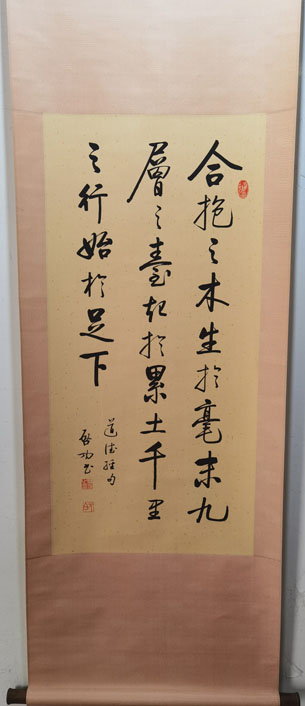 合抱之木生於毫末九
層之臺起於累土千里
之行始於足下
道德經句
啟功書